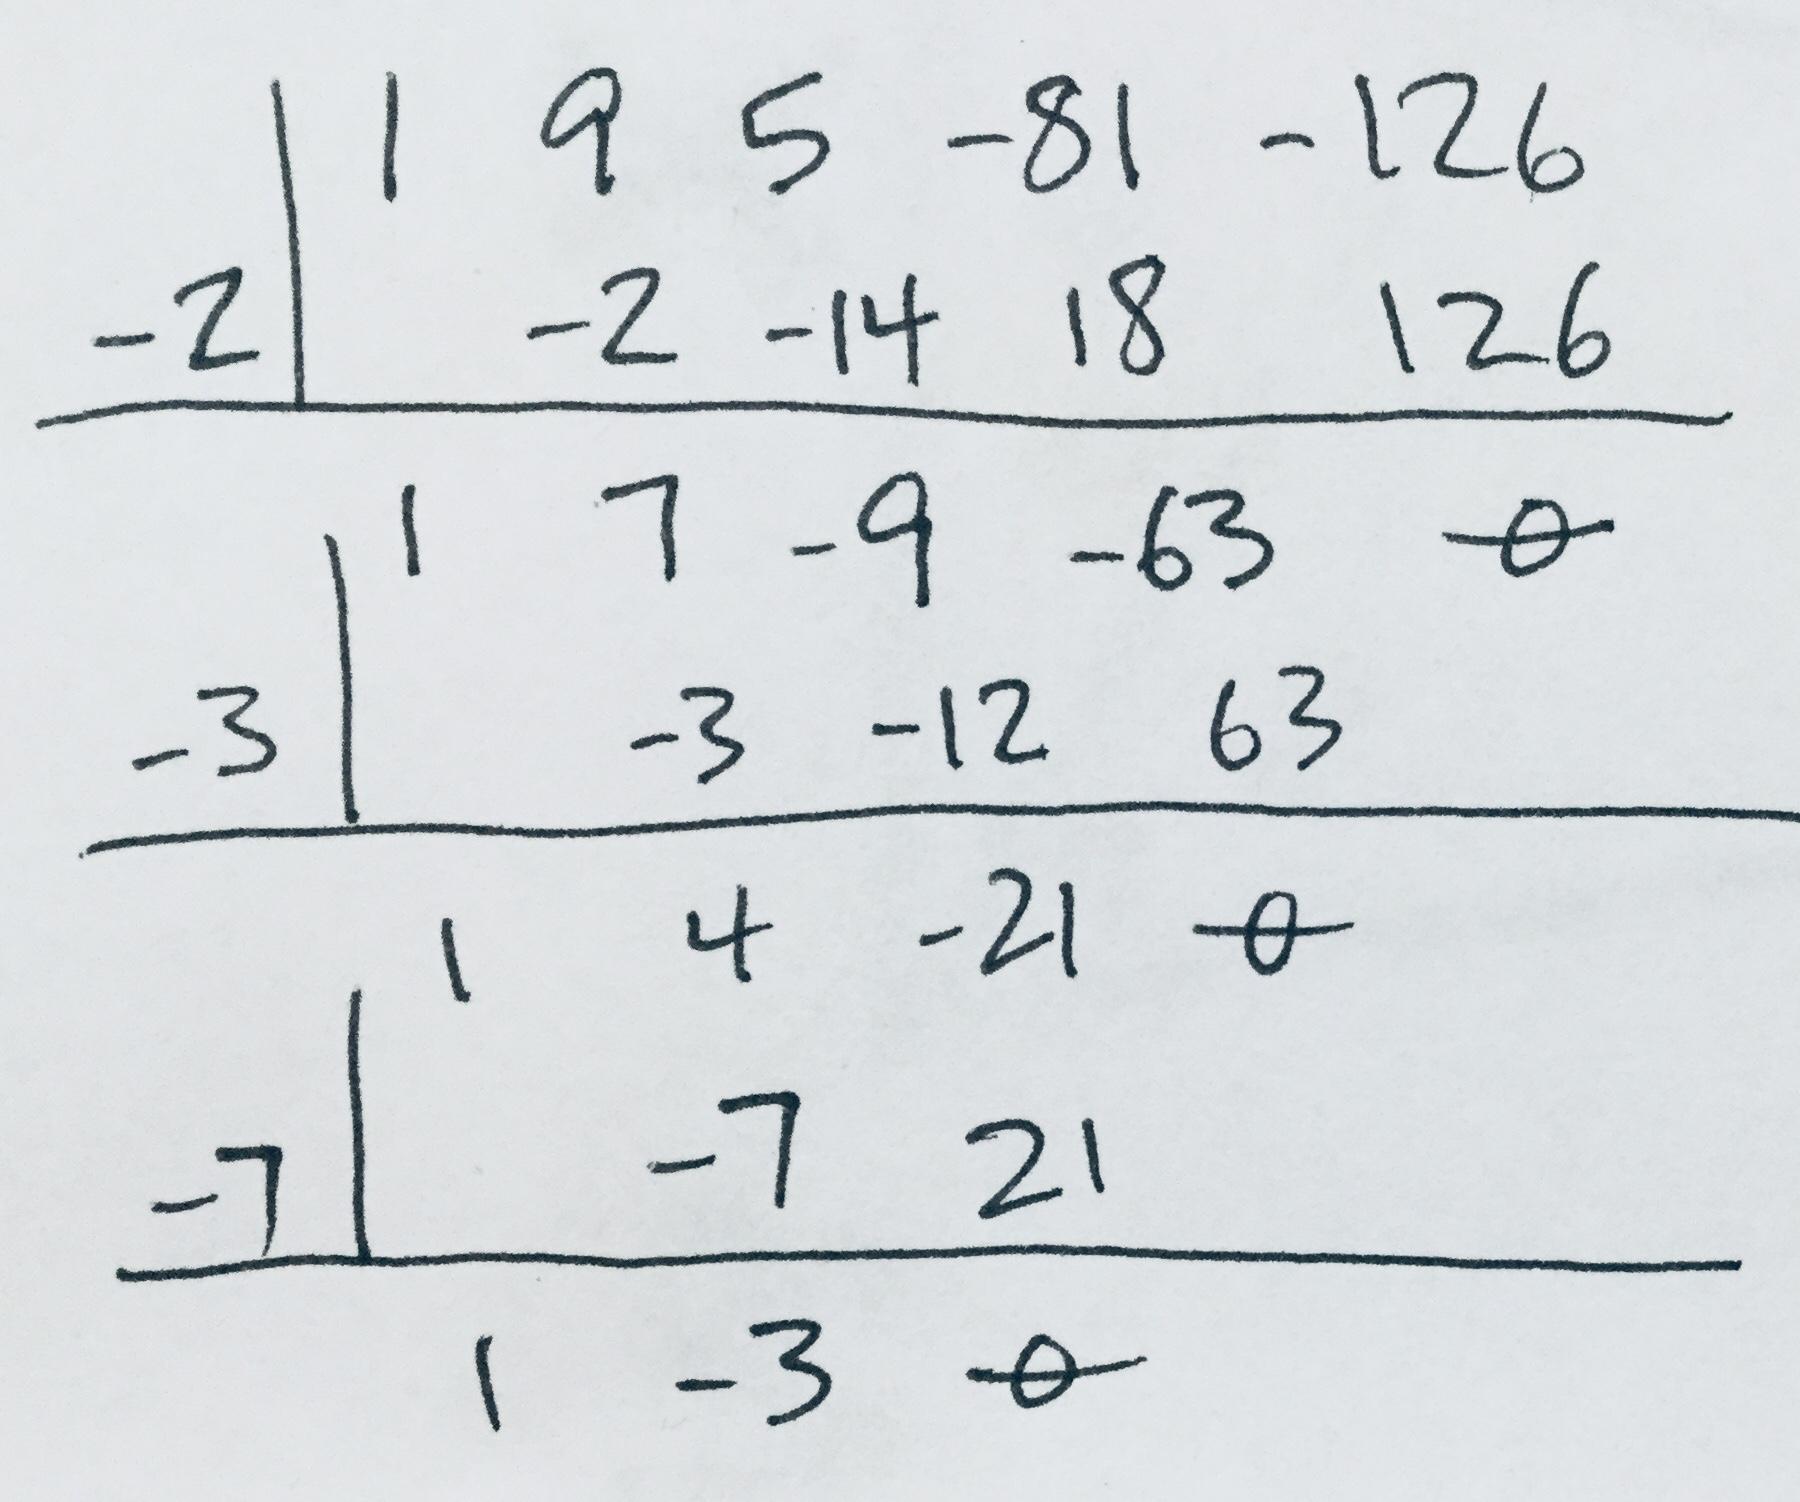 1 9 5 -81 -126
-2 | -2 -14 18 126
1 7 -9 -63 0
-3 | -3 -12 63
1 4 -21 0
-7 | -7 21
1 -3 0